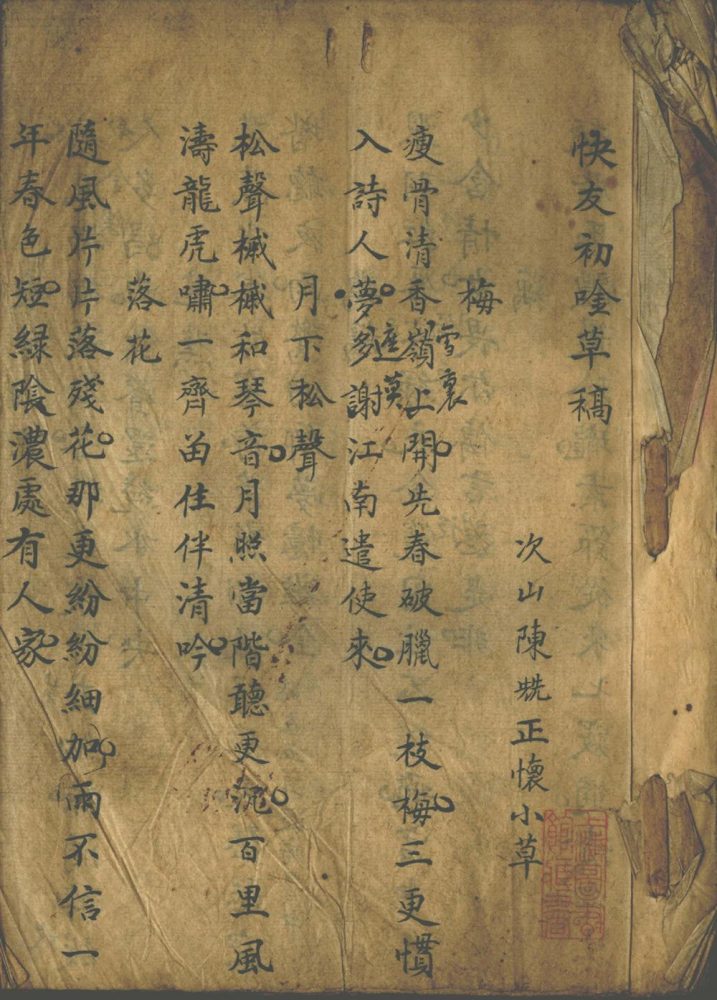 快友初唫草稿
次山陳正懷小草
梅
雪裏
瘦骨清香嶺上開先春破臘一枝梅三更慣
入詩人夢多謝江南遣使來
月下松聲
松聲槭槭和琴音月照當階聽更沉百里風
濤龍虎嘯一齊畄住伴清吟
落花
隨風片片落殘花那更紛紛細加雨不信一
年春色短綠陰濃處有人家